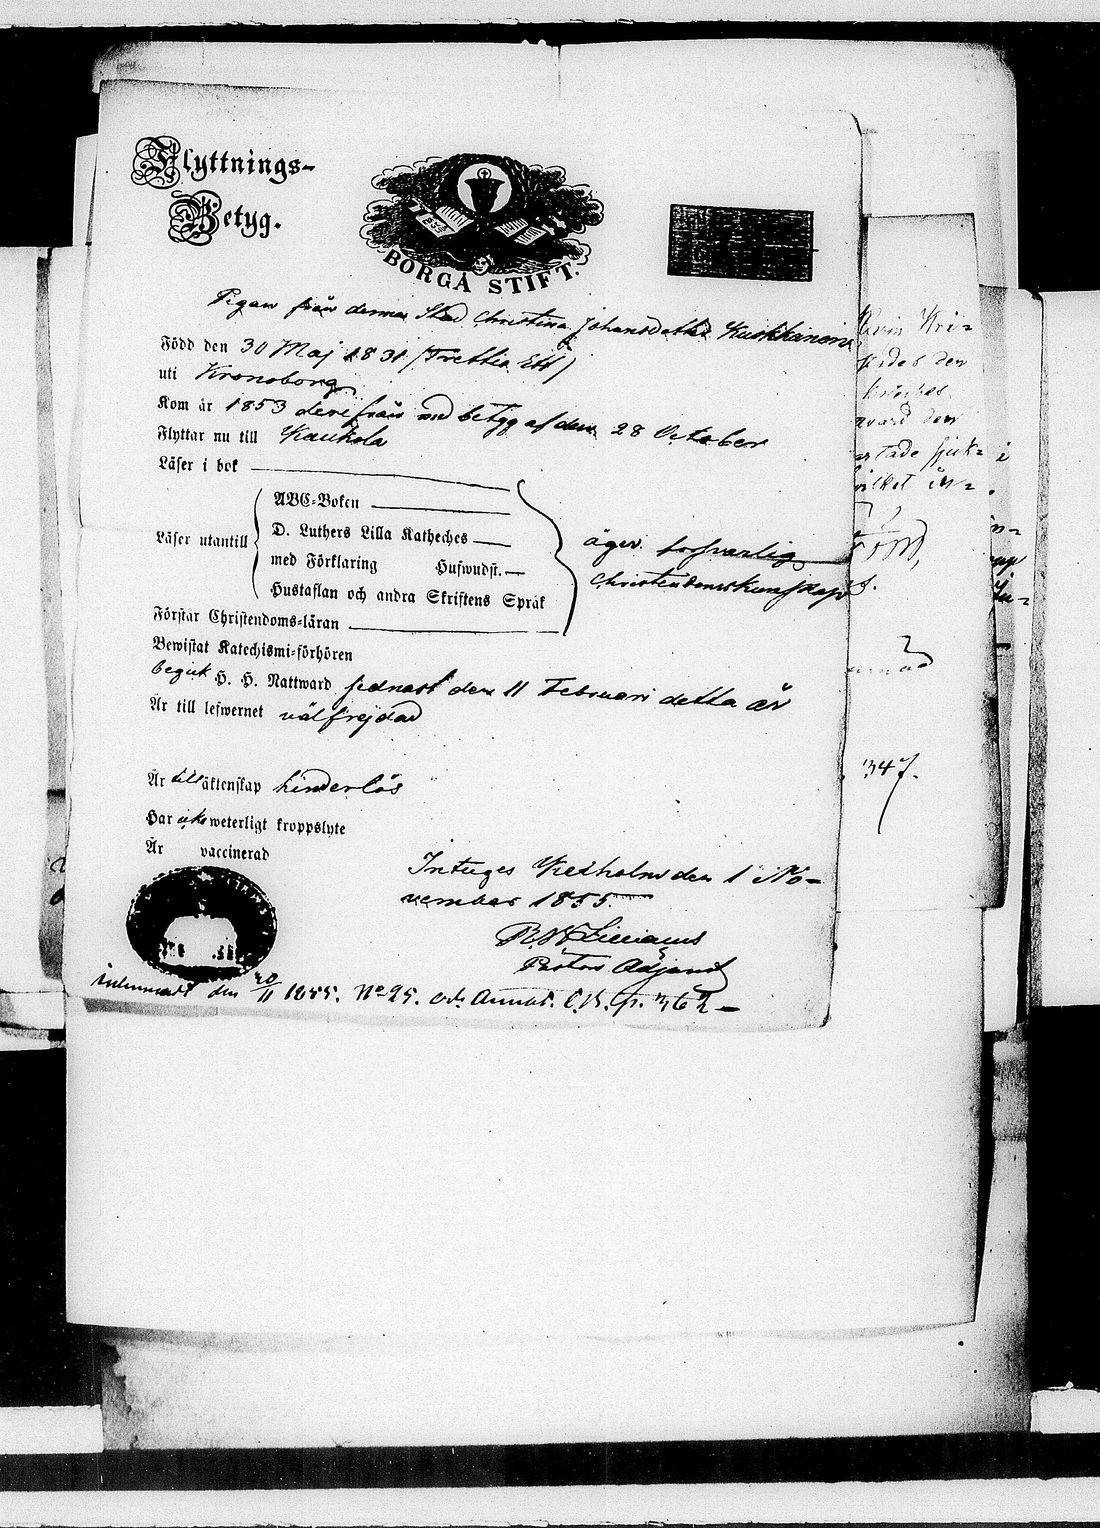 Flyttnings-
Betyg.
BORGÅ STIFT.
Pigan från denna Stad Christina Johansdotter Kuokkanen
Född den 30 Maj 1831 (Trettio Ett)
uti Kronoborg
Kom år 1853 derifrån med betyg af den 28 October
Flyttar nu till Kaukola
Läser i bok
Läser utantill
ABC-Boken
D. Luthers Lilla Katheches
med Förklaring Hufwudst.
Hustaflan och andra Skriftens Språk
äger försvarlig
Christendomskunskap
Förstår Christendoms-läran
Bewistat Katechismi-förhören
begick H. H. Nattward sednast den 11 Februari detta år
Är till lefwernet välfrejdad
Är till äktenskap hinderlös
Har icke weterligt kroppslyte
Är vaccinerad
Intygas Kexholm den 1 No-
vember 1855
Pastors Adjunct
den 20/11 1855. No 25. och Annot. C.B. p. 362
347.